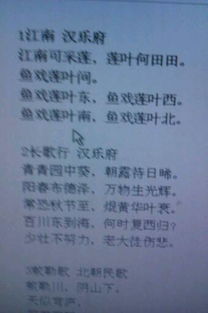 1江南 汉乐府
江南可采莲，莲叶何田田。
鱼戏莲叶间。
鱼戏莲叶东，鱼戏莲叶西。
鱼戏莲叶南，鱼戏莲叶北。
2长歌行 汉乐府
青青园中葵，朝露待日晞。
阳春布德泽，万物生光辉。
常恐秋节至，焜黄华叶衰。
百川东到海，何时复西归？
少壮不努力，老大徒伤悲。
3敕勒歌 北朝民歌
敕勒川，阴山下。
天似穹庐，